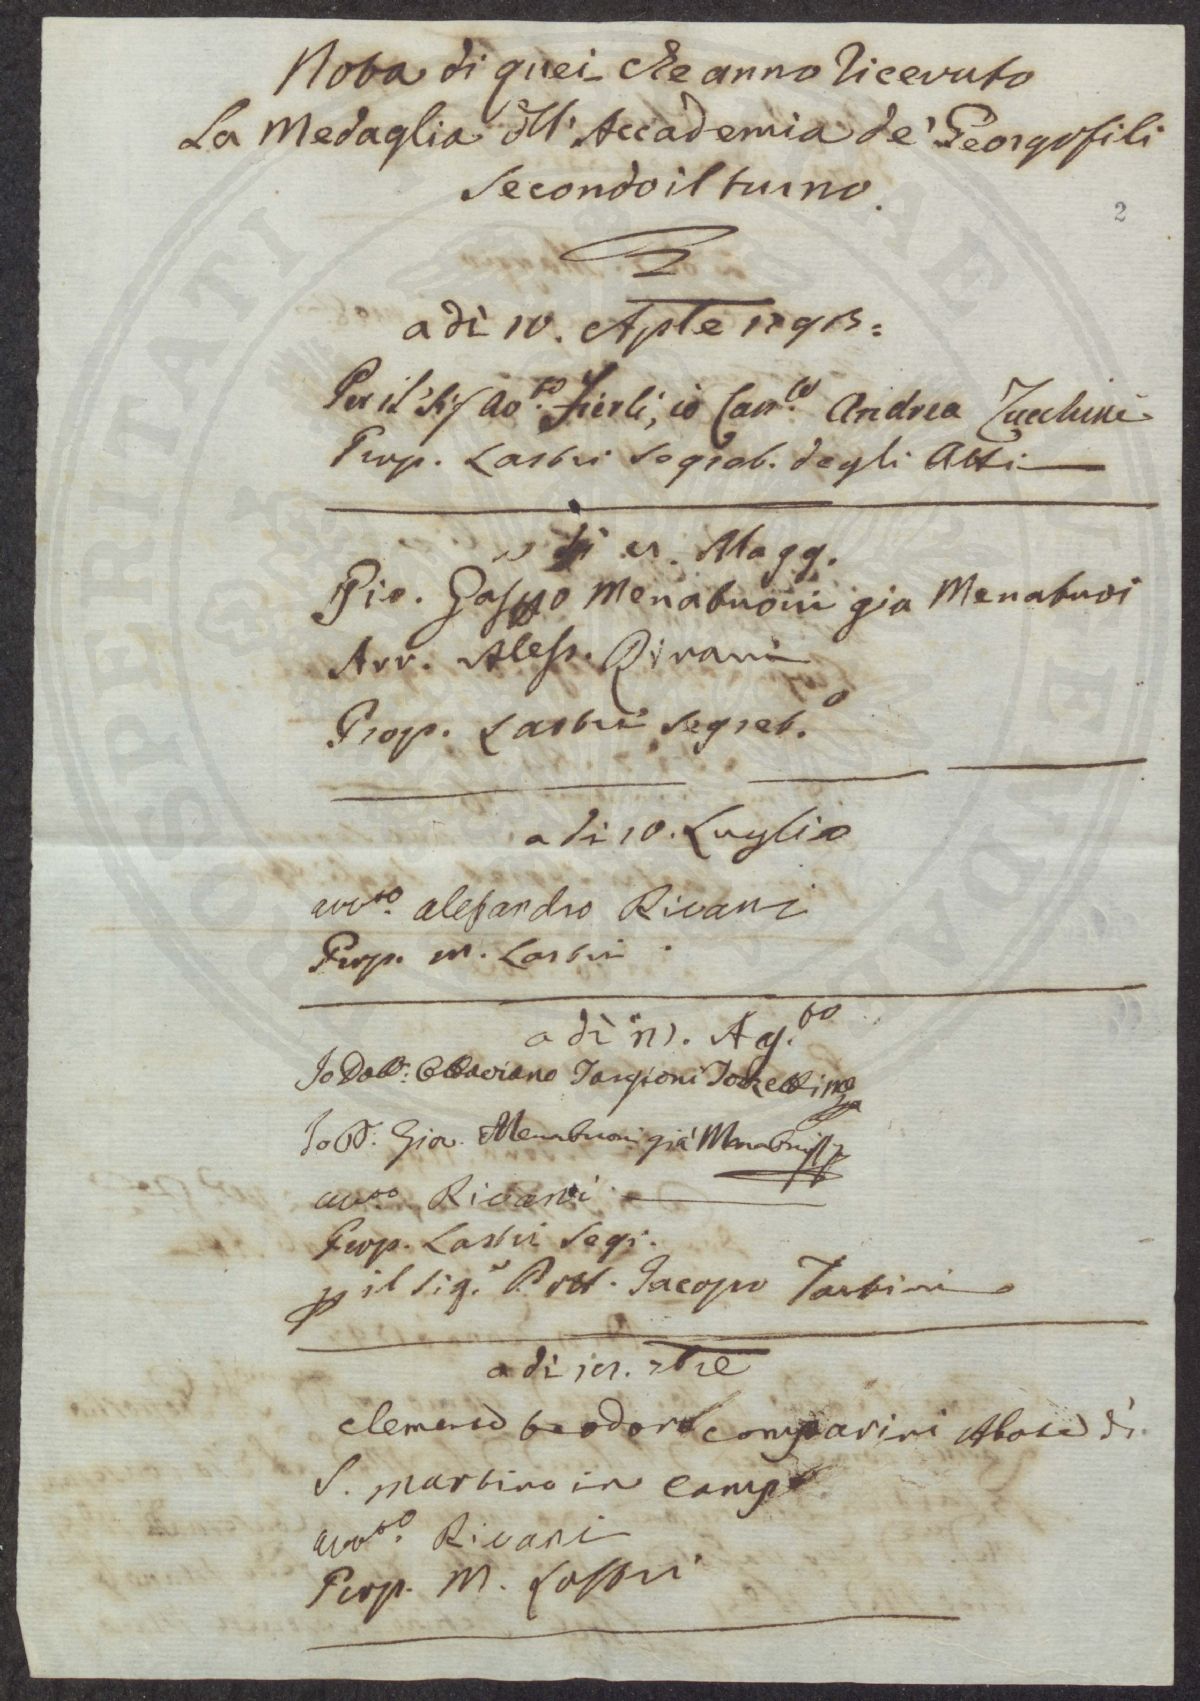 Nota di quei che anno ricevuto
La Medaglia dell' Accademia de' Georgofili
Secondo il turno.
2
a dì 10. Aple 1793=
Per il Sig Avto. Fierli, io Can.co Andrea Zucchini
Prop. Lastri Segret. degli Atti
a di Magg.
Gio. Menabuoni gia Menabuoi
Avv. Aless. Rivani
Prop. Lastri Segret.o
a di 10. Luglio
avvto. alessandro Rivani
Prop. M. Lastri
a dì Ag.to
Io Dott. Ottaviano Targioni Tozzetti mp
Io D. Gio. Menabuoni già Menabuoi
avvto. Rivani
Prop. Lastri Segr.
p il Sig.r Dott. Jacopo Tartini
a di 7bre
Clemente teodoro comparini Abate di
S. martino in Campo
avvto. Rivani
Prop. M. Lastri
OSPERITATI PUBLICAE AUGENDAE